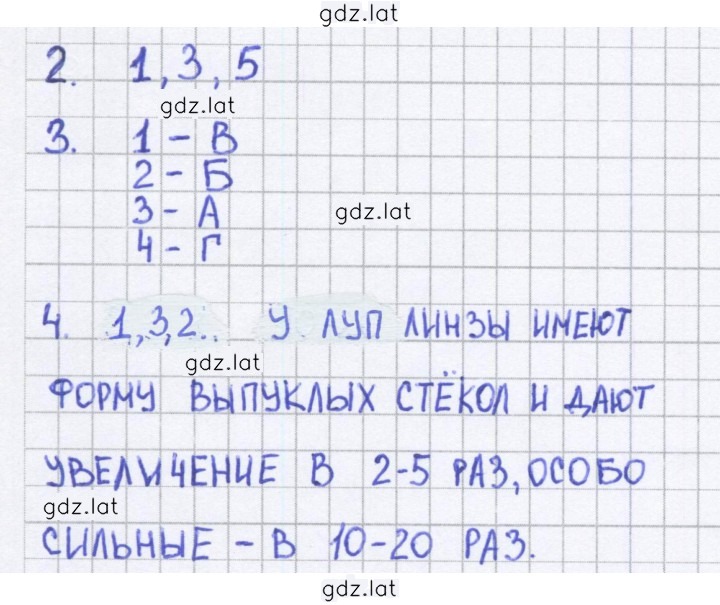 gdz.lat
2. 1, 3, 5
gdz.lat
3. 1 - В
2 - Б
3 - А
gdz.lat
4 - Г
4. 1, 3, 2.. У ЛУП ЛИНЗЫ ИМЕЮТ
gdz.lat
ФОРМУ ВЫПУКЛЫХ СТЁКОЛ И ДАЮТ
УВЕЛИЧЕНИЕ В 2-5 РАЗ, ОСОБО
gdz.lat
СИЛЬНЫЕ - В 10-20 РАЗ.
gdz.lat